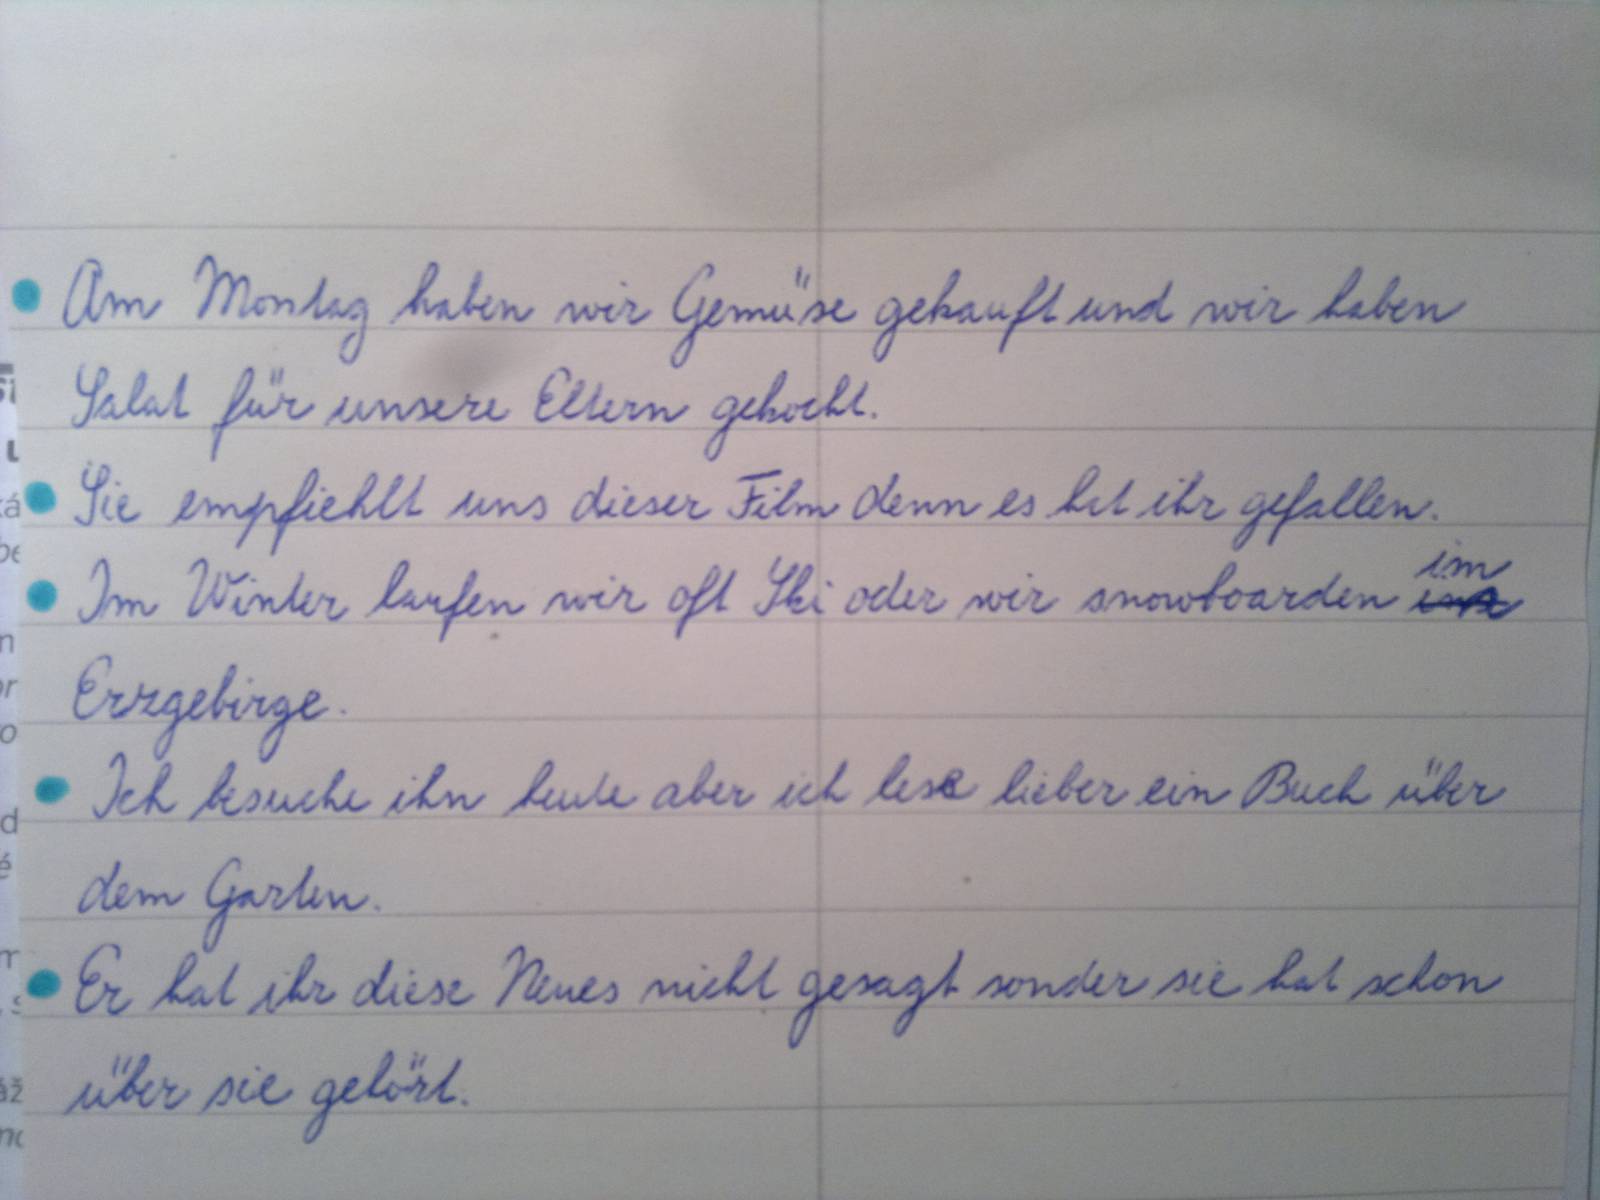 Am Montag haben wir Gemüse gekauft und wir haben
Salat für unsere Eltern gekocht.
Sie empfiehlt uns dieser Film denn es hat ihr gefallen.
im
Im Winter laufen wir oft Ski oder wir snowboarden
Erzgebirge.
Ich besuche ihn heute aber ich lese lieber ein Buch über
dem Garten.
Er hat ihr diese Neues nicht gesagt sonder sie hat schon
über sie gehört.